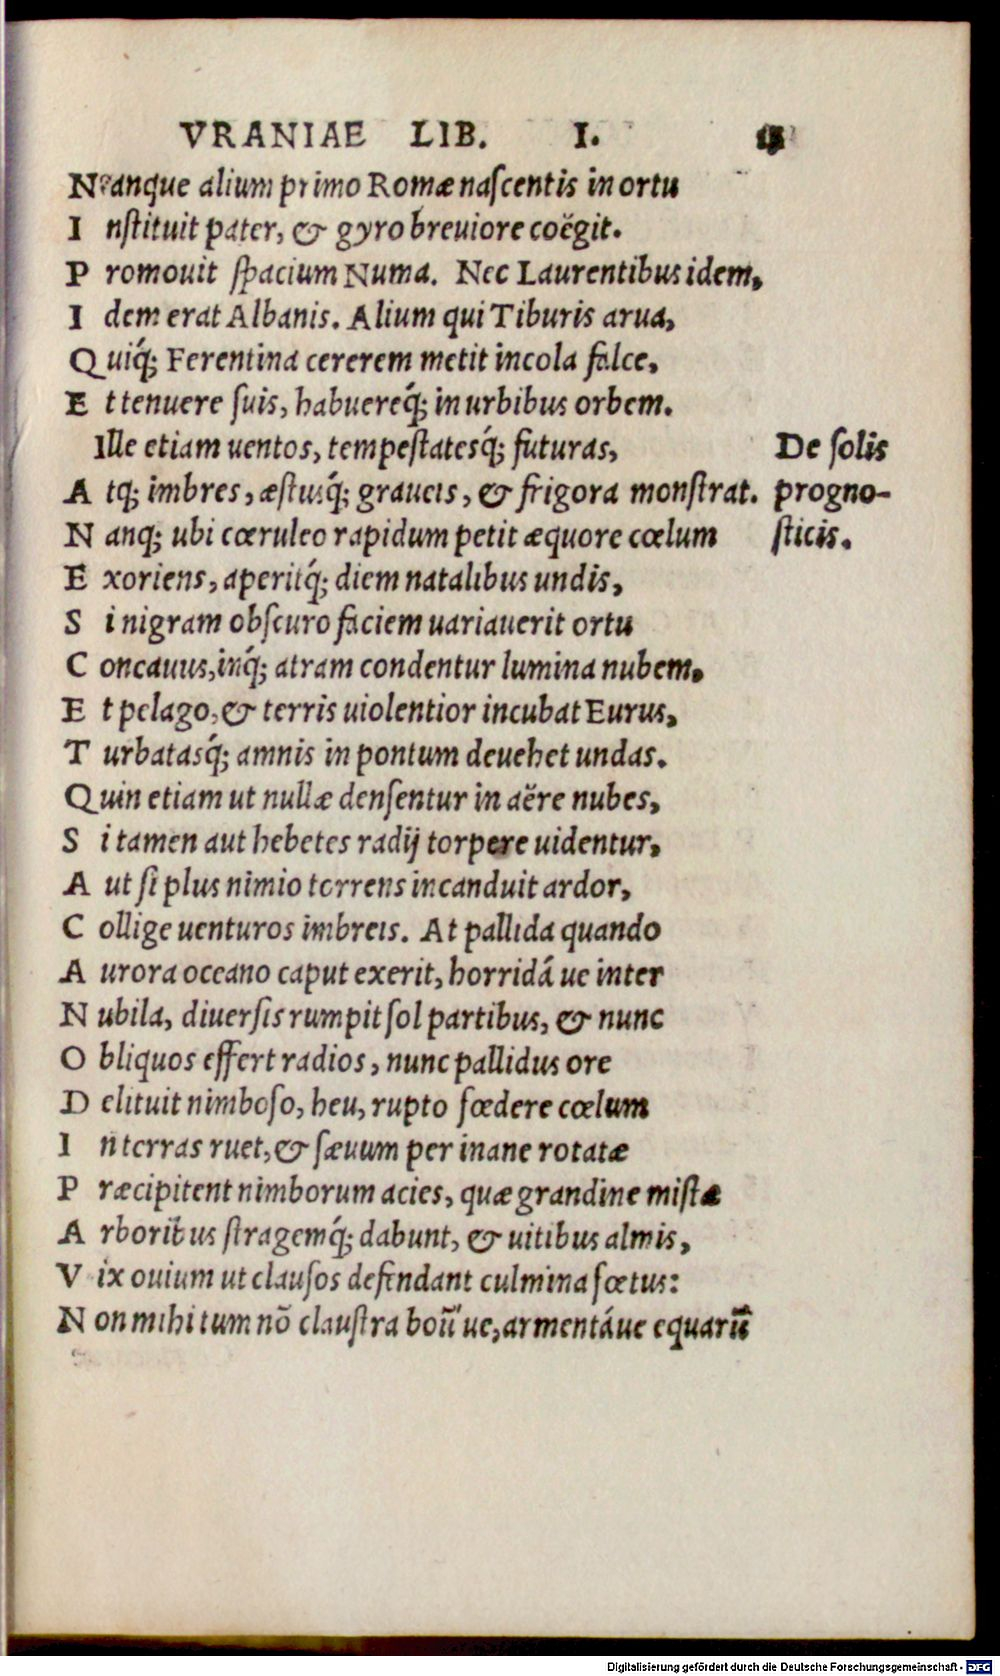 VRANIAE LIB. I.
Nanque alium primo Romæ naſcentis in ortu
I nſtituit pater, & gyro breuiore coëgit.
P romouit ſpacium Numa. Nec Laurentibus idem,
I dem erat Albanis. Alium qui Tiburis arua,
Q uiq́; Ferentina cererem metit incola falce,
E t tenuere ſuis, habuereq́; in urbibus orbem.
Ille etiam uentos, tempeſtatesq́; futuras,
A tq; imbres, æſtusq́; graueis, & frigora monſtrat.
N anq; ubi cœruleo rapidum petit æquore cœlum
E xoriens, aperitq́; diem natalibus undis,
S i nigram obſcuro faciem uariauerit ortu
C oncauus, inq́; atram condentur lumina nubem,
E t pelago, & terris uiolentior incubat Eurus,
T urbatasq́; amnis in pontum deuehet undas.
Q uin etiam ut nullæ denſentur in aëre nubes,
S i tamen aut hebetes radij torpere uidentur,
A ut ſi plus nimio torrens incanduit ardor,
C ollige uenturos imbreis. At pallida quando
A urora oceano caput exerit, horridá ue inter
N ubila, diuerſis rumpit ſol partibus, & nunc
O bliquos effert radios, nunc pallidus ore
D elituit nimboſo, heu, rupto fœdere cœlum
I n terras ruet, & ſæuum per inane rotatæ
P ræcipitent nimborum acies, quæ grandine miſtæ
A rboribus ſtragemq́; dabunt, & uitibus almis,
V ix ouium ut clauſos defendant culmina fœtus:
N on mihi tum nō clauſtra boū ue, armentáue equarū
De ſolis
progno-
ſticis.
Digitalisierung gefördert durch die Deutsche Forschungsgemeinschaft - DFG